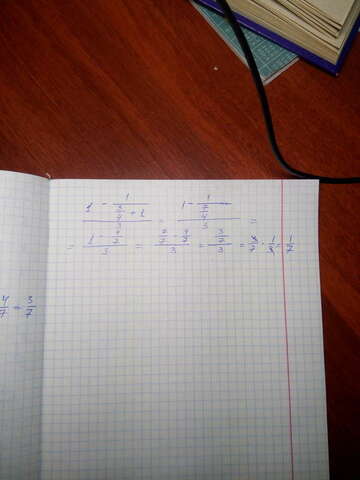 (1 - 1/(3/4 + 1))/3 = (1 - 1/(7/4))/3 =
= (1 - 4/7)/3 = (7/7 - 4/7)/3 = (3/7)/3 = 3/7 · 1/3 = 1/7
4/7 = 3/7